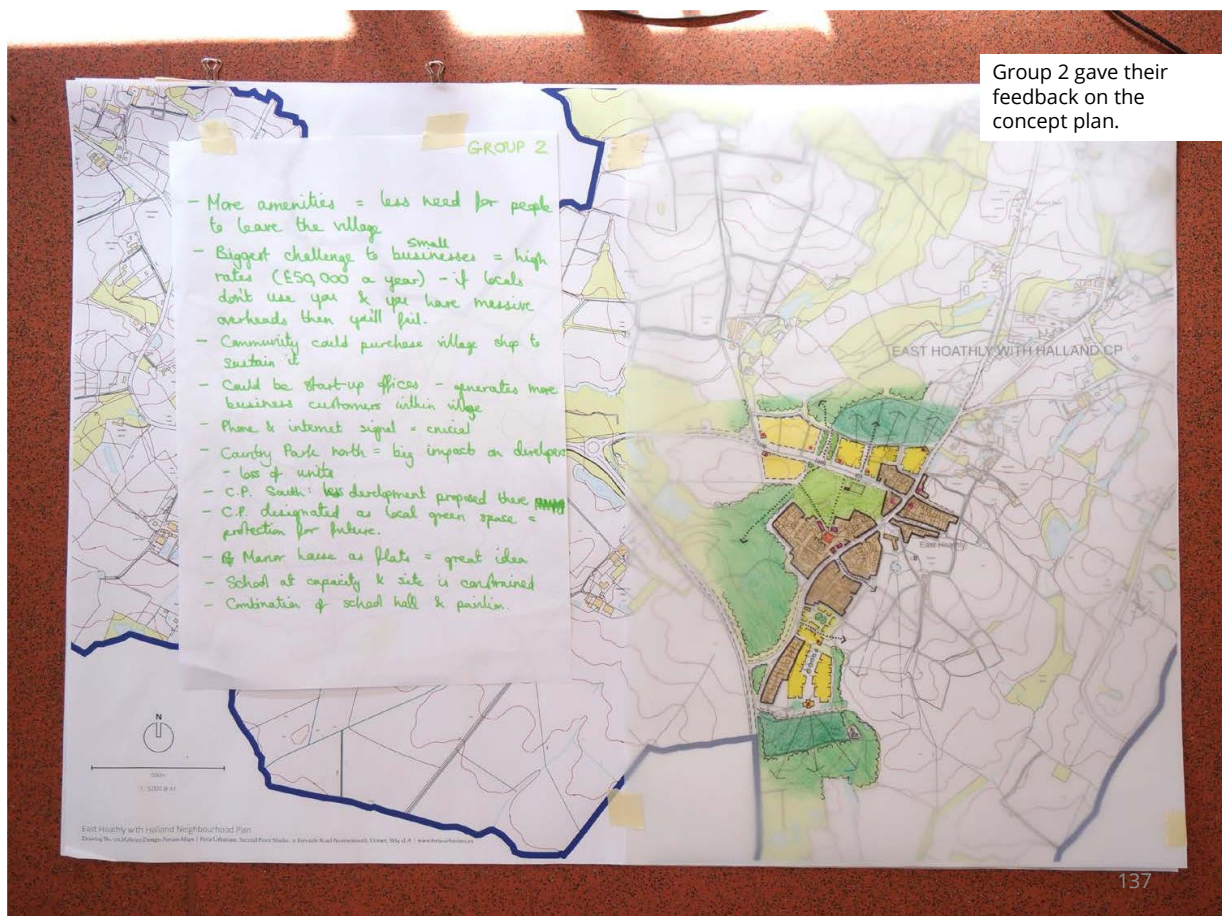 Group 2 gave their
feedback on the
concept plan.
GROUP 2
- More amenities = less need for people
to leave the village
- Biggest challenge to small businesses = high
rates (£50,000 a year) - if locals
don't use you & you have massive
overheads then you'll fail.
- Community could purchase village shop to
sustain it
- Could be start-up offices - generates more
business customers within village
- Phone & internet signal = crucial
- Country Park north = big impact on developer
- loss of units
- C.P. South: less development proposed there
- C.P. designated as local green space =
protection for future.
- Manor house as flats = great idea
- School at capacity & site is constrained
- Combination of school hall & pavilion.
EAST HOATHLY WITH HALLAND CP
East Hoathly
N
500m
East Hoathly with Halland Neighbourhood Plan
137